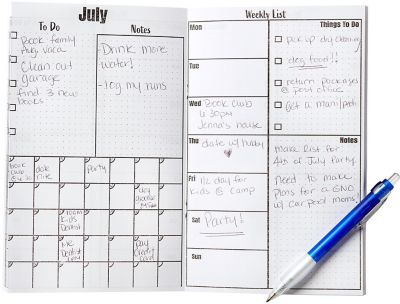 July
To Do
Book family
Aug. vaca
Clean out
garage
find 3 new
books
Notes
-Drink more
water!
-log my runs
book
club
date
nite
party
dog
groomer
kids
Dentist
me
Dentist
pay
credit
card
Weekly List
Mon
Tue
Wed
Book Club
6:30pm
Jenna's house
Thu
date w/ hubby
Fri
1/2 day for
kids @ camp
Sat
Party!
Sun
Things To Do
pick up dry cleaning
dog food!!
return packages
@ post office
get a mani/pedi
Notes
make list for
4th of July Party.
need to make
plans for a GNO
w/ car pool moms!